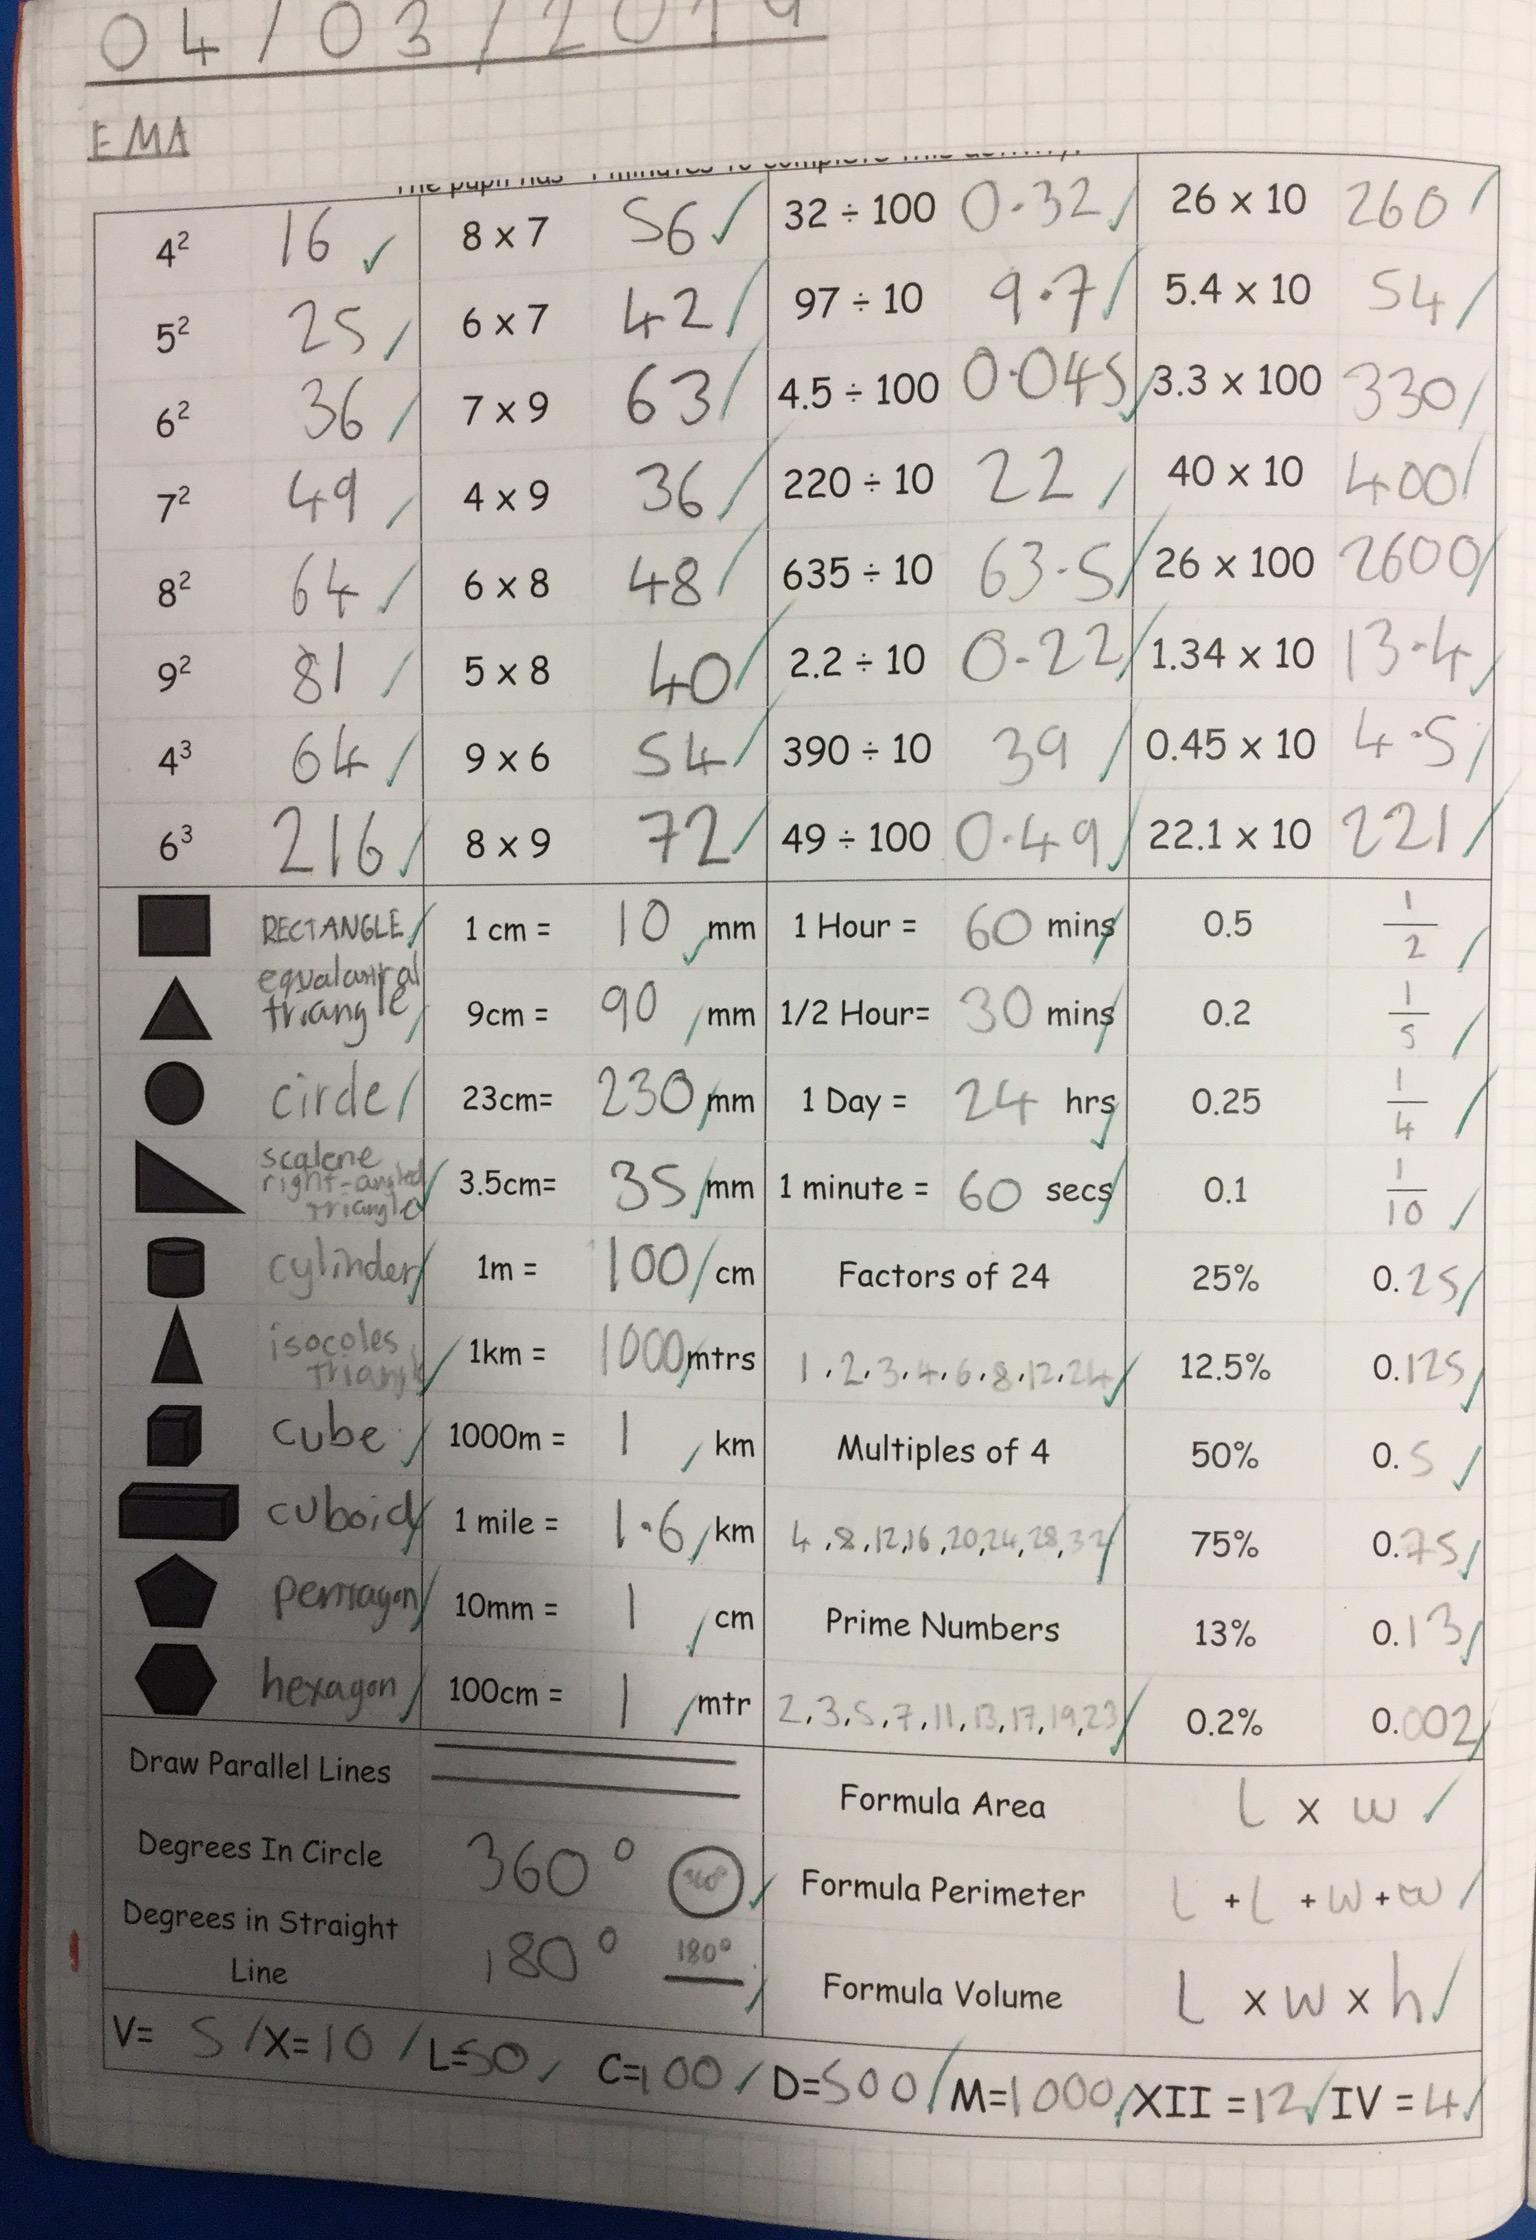 04/03/2019
EMA
4² 16 8 x 7 56 32 ÷ 100 0.32 26 x 10 260
5² 25 6 x 7 42 97 ÷ 10 9.7 5.4 x 10 54
6² 36 7 x 9 63 4.5 ÷ 100 0.045 3.3 x 100 330
7² 49 4 x 9 36 220 ÷ 10 22 40 x 10 400
8² 64 6 x 8 48 635 ÷ 10 63.5 26 x 100 2600
9² 81 5 x 8 40 2.2 ÷ 10 0.22 1.34 x 10 13.4
4³ 64 9 x 6 54 390 ÷ 10 39 0.45 x 10 4.5
6³ 216 8 x 9 72 49 ÷ 100 0.49 22.1 x 10 221
RECTANGLE 1 cm = 10 mm 1 Hour = 60 mins 0.5 1/2
triangle 9cm = 90 mm 1/2 Hour= 30 mins 0.2 1/5
circle 23cm= 230 mm 1 Day = 24 hrs 0.25 1/4
scalene
right-angled
triangle 3.5cm= 35 mm 1 minute = 60 secs 0.1 1/10
cylinder 1m = 100 cm Factors of 24 25% 0.25
isocoles
triangle 1km = 1000 mtrs 1,2,3,4,6,8,12,24 12.5% 0.125
cube 1000m = 1 km Multiples of 4 50% 0.5
cuboid 1 mile = 1.6 km 4,8,12,16,20,24,28,32 75% 0.75
pentagon 10mm = 1 cm Prime Numbers 13% 0.13
hexagon 100cm = 1 mtr 2,3,5,7,11,13,17,19,23 0.2% 0.002
Draw Parallel Lines Formula Area L x w
Degrees In Circle 360° 360° Formula Perimeter L + L + w + w
Degrees in Straight
Line 180° 180° Formula Volume L x w x h
V= 5 X=10 L=50 C=100 D=500 M=1000 XII =12 IV =4